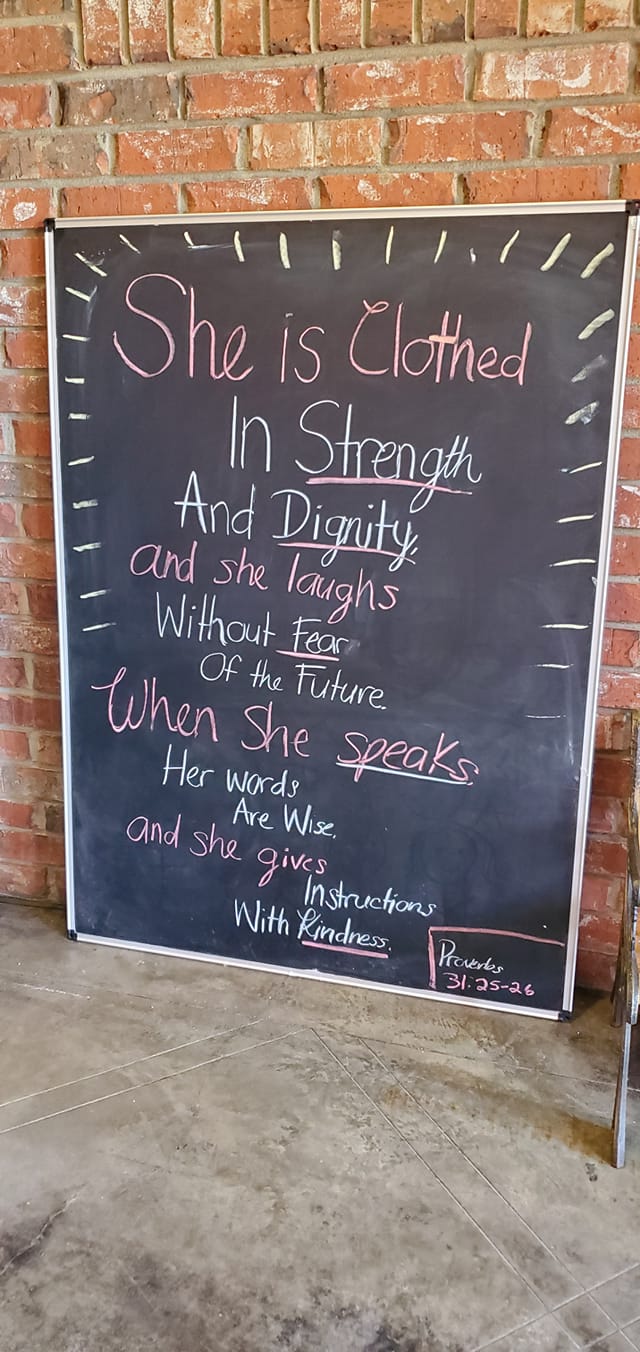 She is Clothed
In Strength
And Dignity,
and she laughs
Without Fear
Of the Future.
When She speaks
Her words
Are Wise,
and she gives
Instructions
With Kindness.
Proverbs
31:25-26